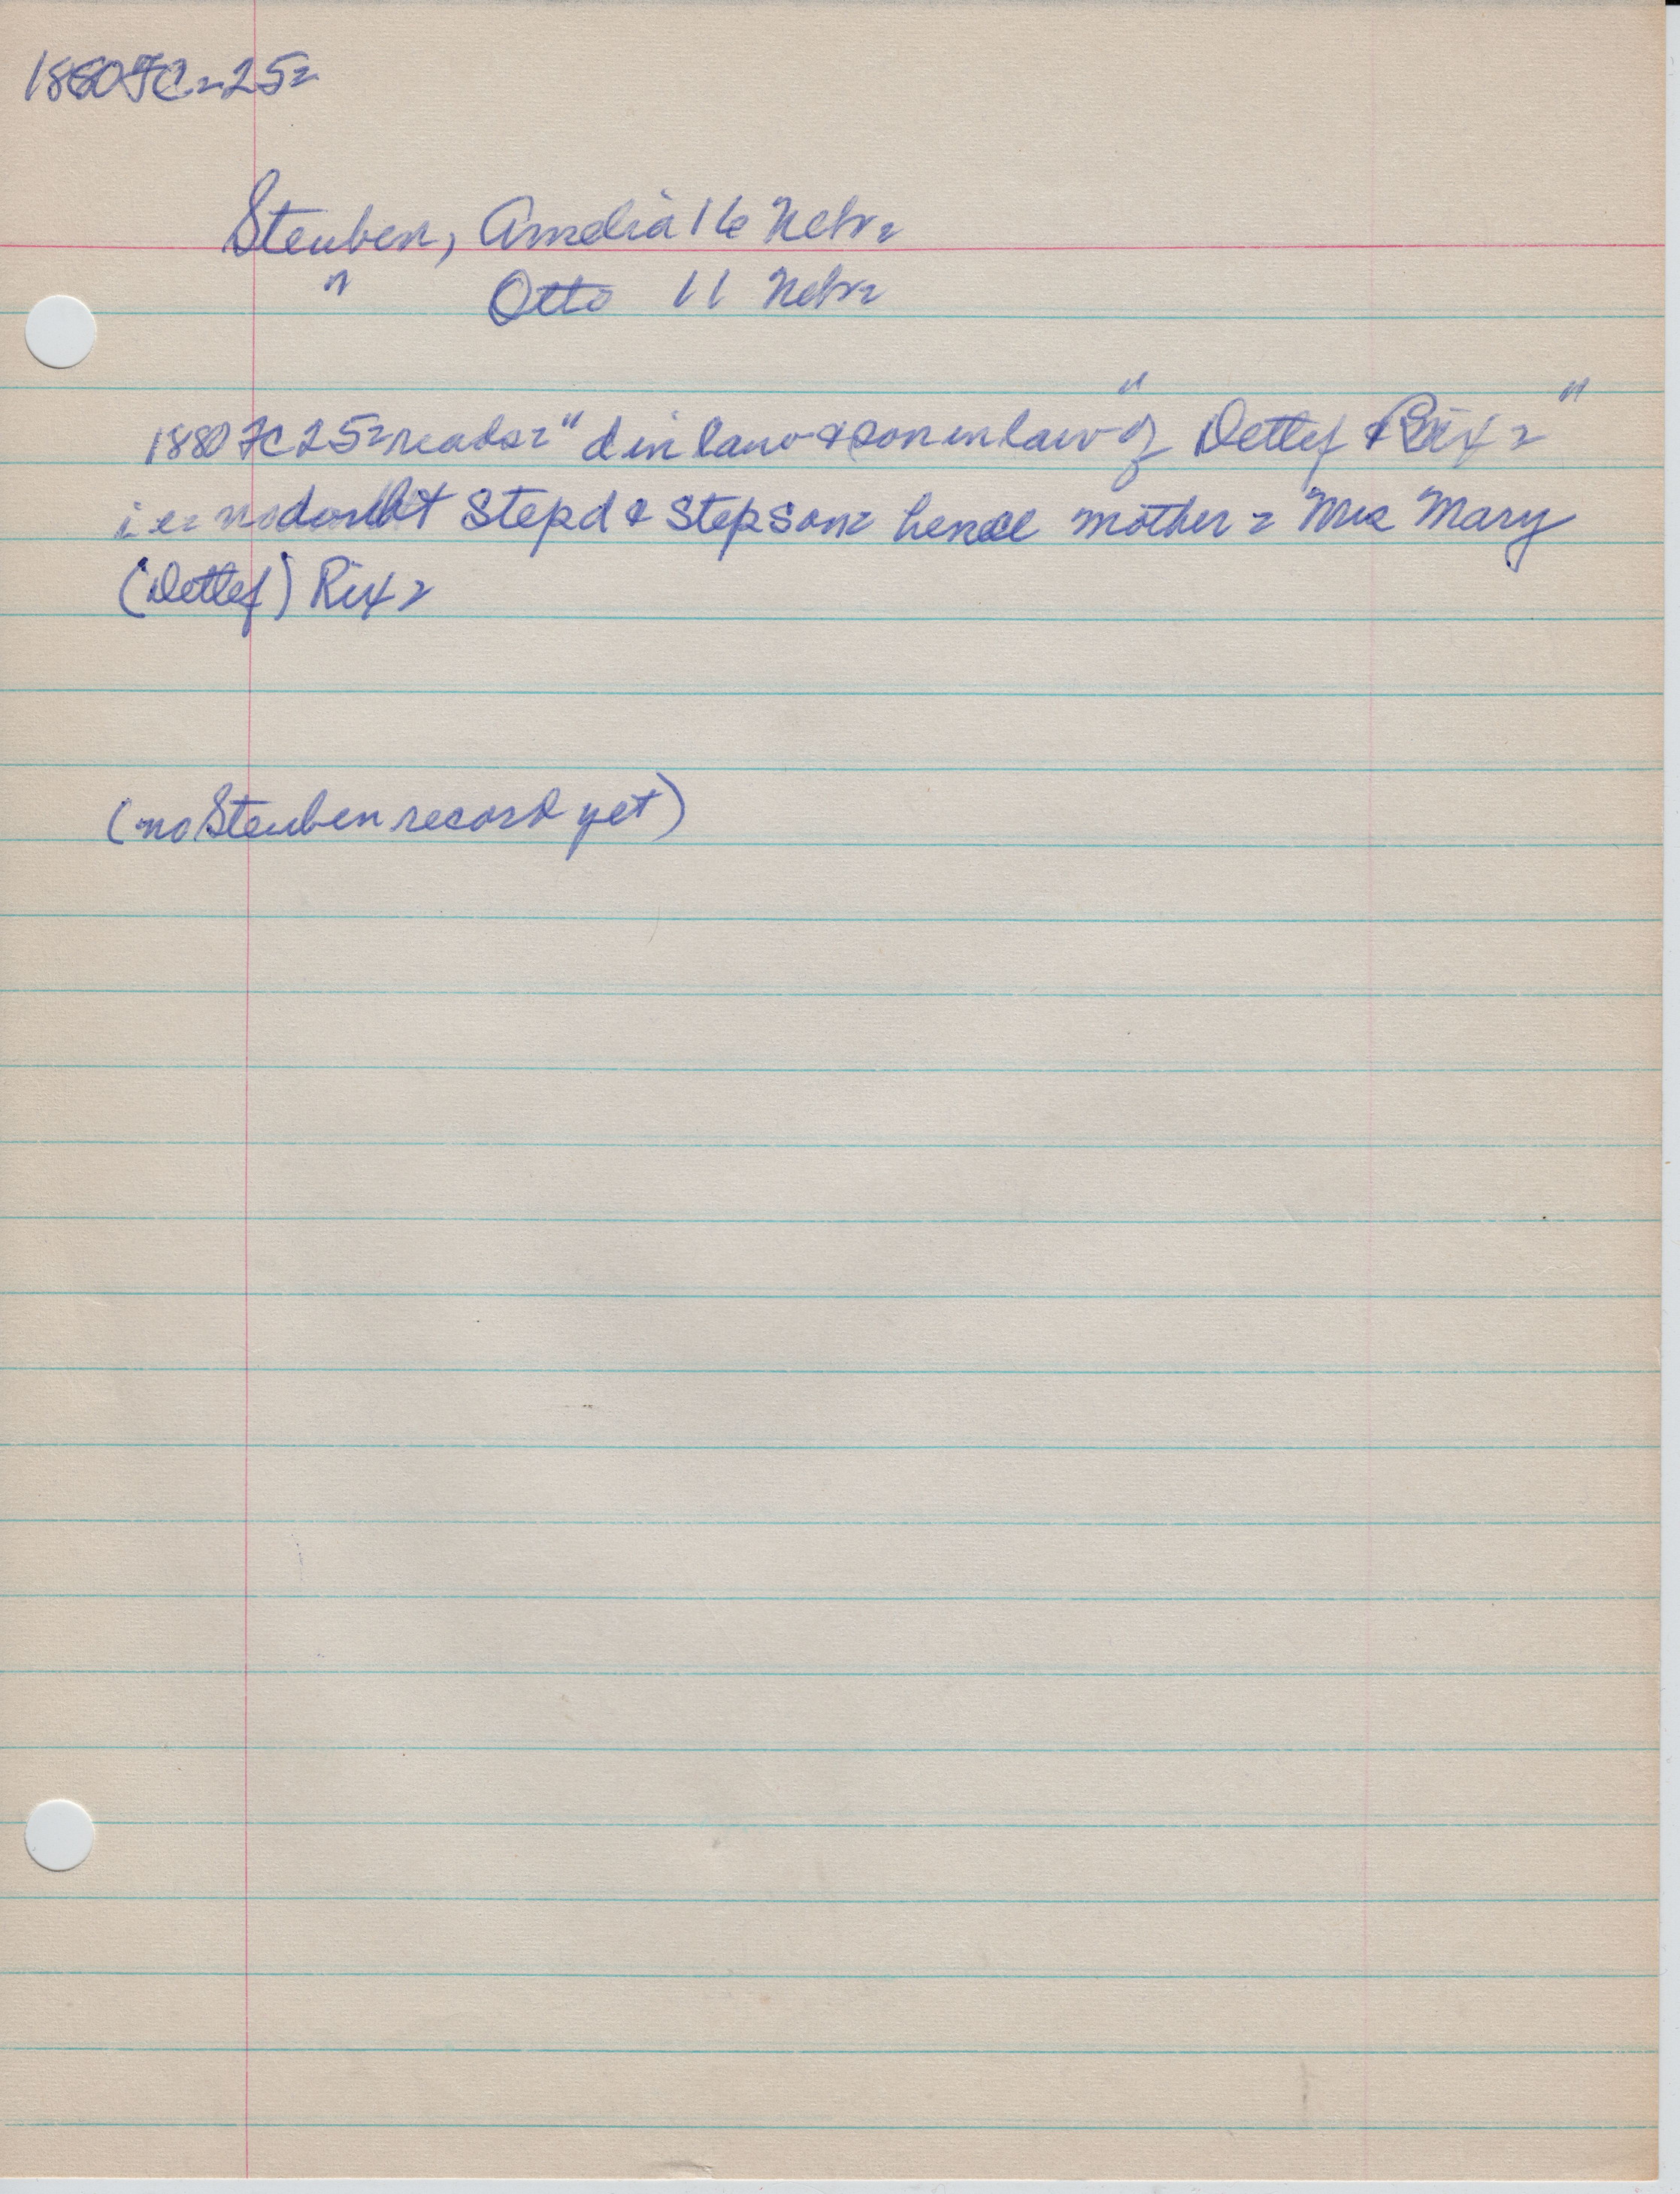 1880 FC=25=
Steuben, Amelia 16 Nebr=
" Otto 11 Nebr=
1880 FC 25= reads= "d in law & son in law" of Detlef Rix="
i.e= no doubt Stepd & Stepson= hence mother= Mrs Mary
(Detlef) Rix=
(no Steuben record yet)